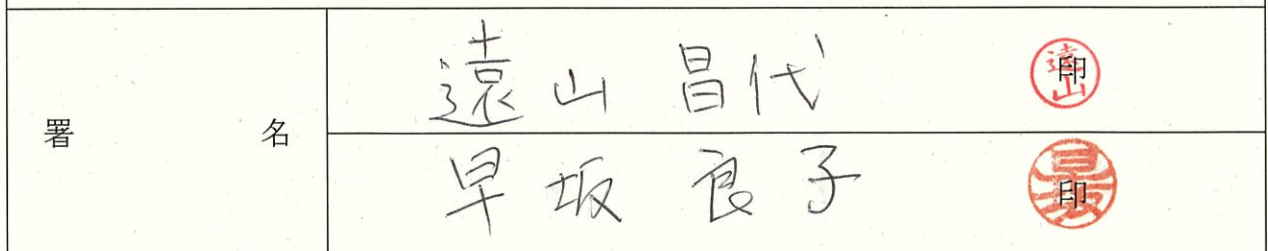 署名
遠山 昌代 印
遠山
早坂 良子 印